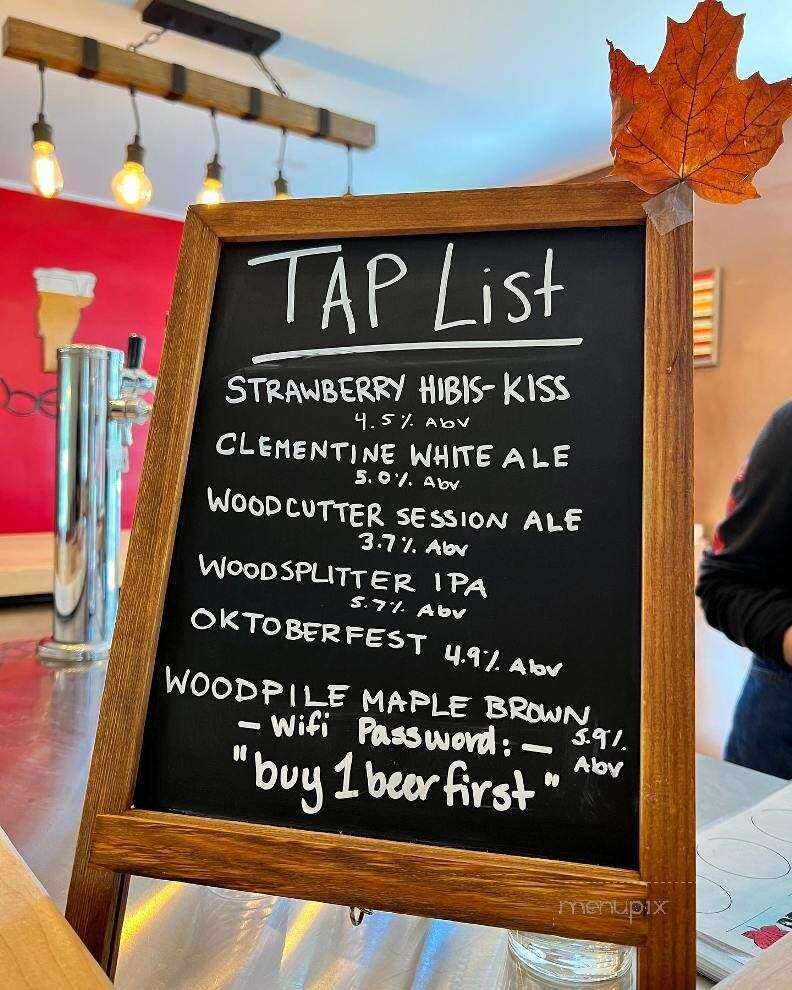 TAP List
STRAWBERRY HIBIS-KISS
4.5% Abv
CLEMENTINE WHITE ALE
5.0% Abv
WOODCUTTER SESSION ALE
3.7% Abv
WOODSPLITTER IPA
5.7% Abv
OKTOBERFEST 4.9% Abv
WOODPILE MAPLE BROWN
5.9%
Abv
- Wifi Password: -
"buy 1 beer first"
menupix